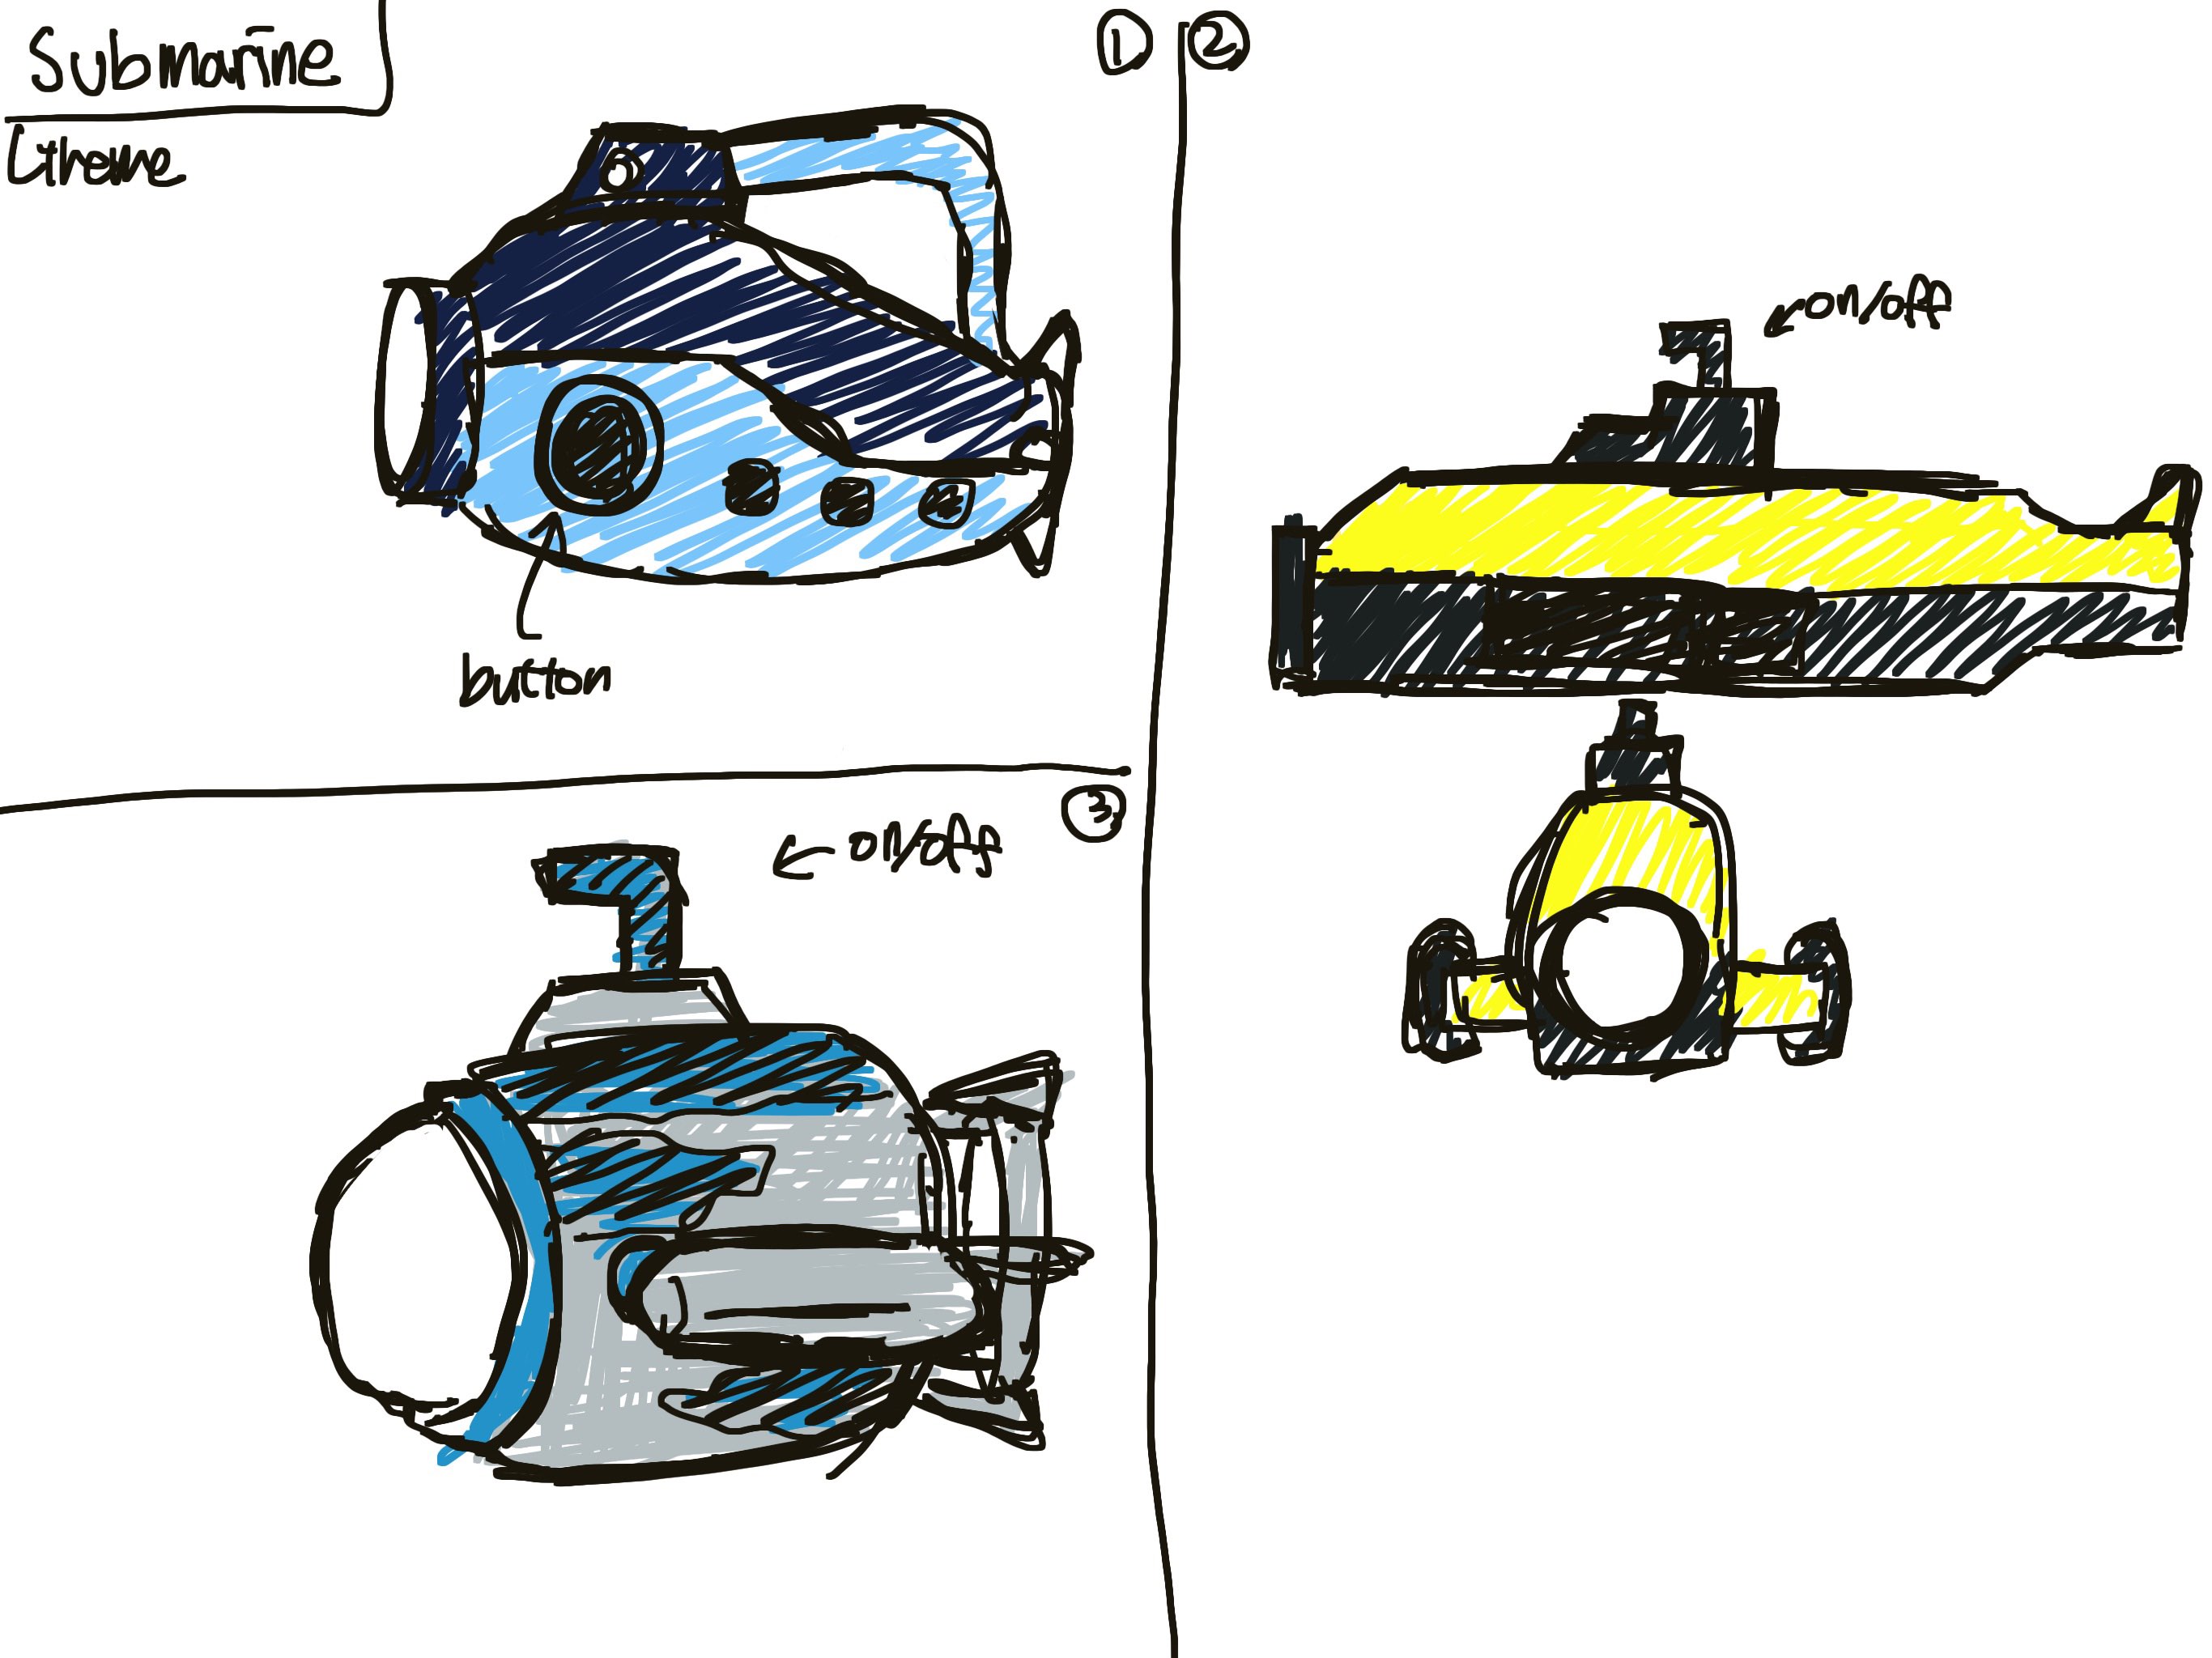 Submarine
theme
①
button
②
on/off
③
on/off